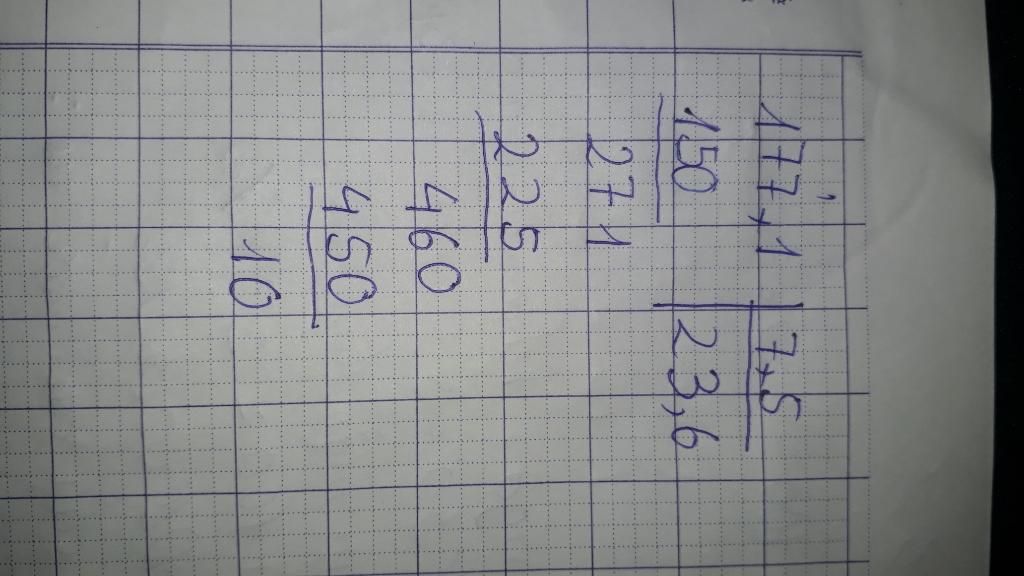 177,1 | 7,5
150 | 23,6
271
225
460
450
10